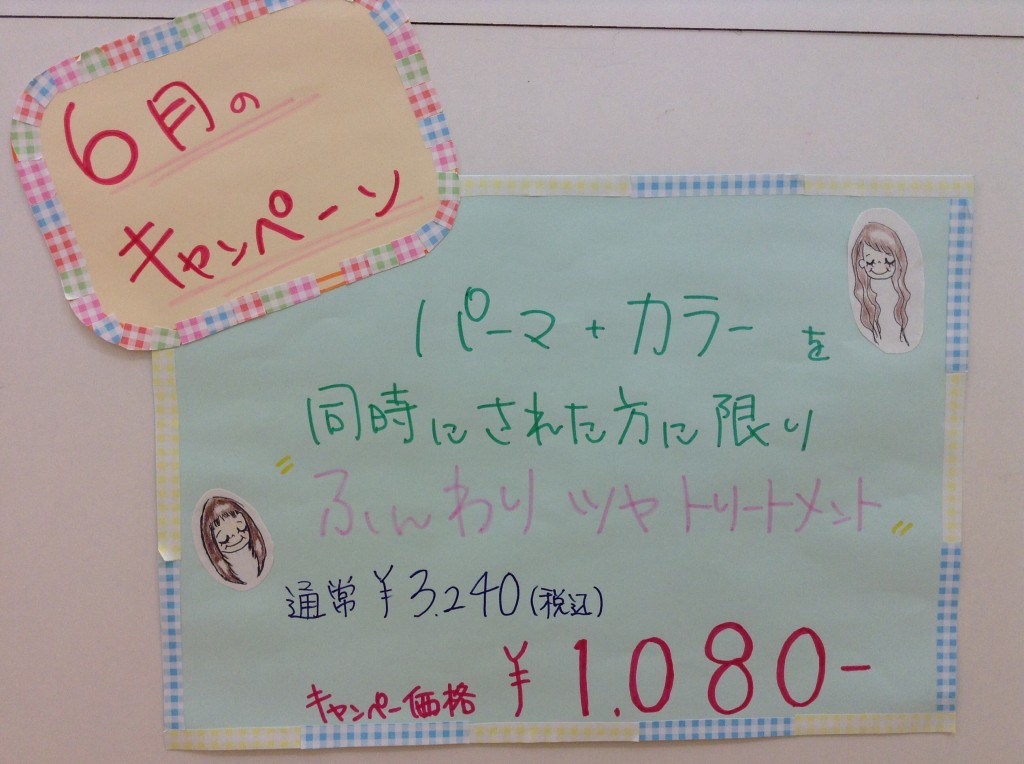 6月の
キャンペーン
パーマ + カラーを
同時にされた方に限り
"ふんわりツヤトリートメント"
通常 ¥3.240(税込)
キャンペー価格 ¥1.080-